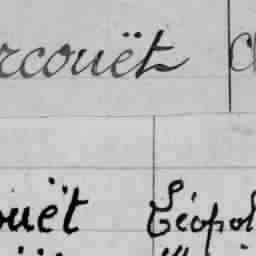 rcouët
ouët Léopol